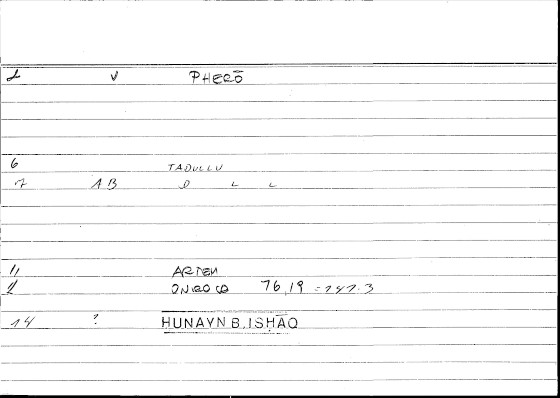 2 V PHERŌ
6 TADULLU
7 1 B D L L
11 ARTEM
ONIROCR 76,19 = 147.3
14 ? HUNAYN B. ISḤĀQ